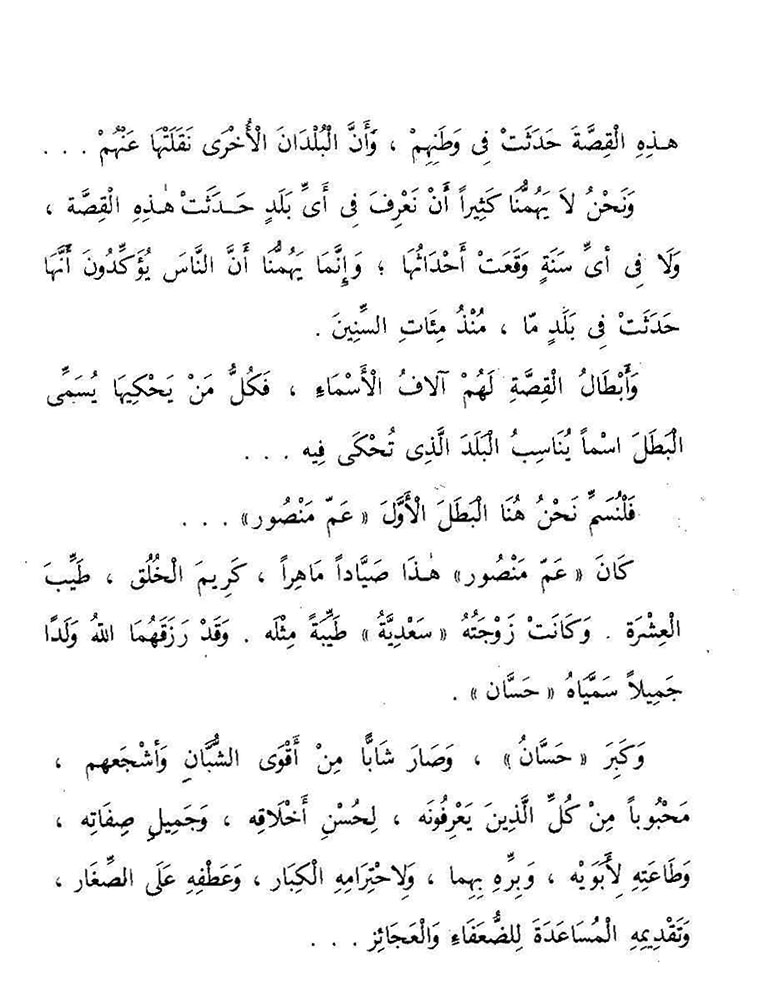 هـذِهِ الْقِصَّةَ حَدَثَتْ فِى وَطَنِهِمْ ، وَأَنَّ الْبُلْدَانَ الْأُخْرَى نَقَلَتْهَا عَنْهُمْ . . .
وَنَحْنُ لاَ يَهُمُّنَا كَثِيراً أَنْ نَعْرِفَ فِى أَىِّ بَلَدٍ حَـدَثَتْ هٰذِهِ الْقِصَّة ،
وَلَا فِى أىِّ سَنَةٍ وَقَعَتْ أَحْدَاثُهَا ؛ وَإِنَّمَا يَهُمُّنَا أَنَّ النَّاسَ يُؤَكِّدُونَ أَنَّهَا
حَدَثَتْ فِى بَلَدٍ مّا ، مُنْذُ مِئَاتِ السِّنِينَ .
وَأَبْطَالُ الْقِصَّةِ لَهُمْ آلافُ الْأَسْمَاءِ ، فَكُلُّ مَنْ يَحْكِيهَا يُسَمِّى
الْبَطَلَ اسْماً يُنَاسِبُ الْبَلَدَ الَّذِى تُحْكَى فِيه . . .
فَلْنُسَمِّ نَحْنُ هُنَا الْبَطَلَ الْأَوَّلَ « عَمّ مَنْصُور» . . .
كَانَ « عَمّ مَنْصُور» هٰذَا صَيَّاداً مَاهِراً ، كَرِيمَ الْخُلُق ، طَيِّبَ
الْعِشْرَة . وَكَانَتْ زَوْجَتُهُ « سَعْدِيَّةُ » طَيِّبَةً مِثْلَه . وَقَدْ رَزَقَهُمَا اللهُ وَلَدًا
جَمِيلاً سَمَّيَاهُ « حَسَّان » .
وَكَبِرَ « حَسَّانُ » ، وَصَارَ شَابًّا مِنْ أَقْوَى الشُّبَّانِ وَأَشْجَعهم ،
مَحْبُوباً مِنْ كُلِّ الَّذِينَ يَعْرِفُونَه ، لِحُسْنِ أَخْلَاقِه ، وَجَمِيلِ صِفَاتِه ،
وَطَاعَتِهِ لِأَبَوَيْه ، وَبِرِّهِ بِهِما ، وَلِاحْتِرَامِهِ الْكِبَار ، وَعَطْفِهِ عَلَى الصِّغَار ،
وَتَقْدِيمِهِ الْمُسَاعَدَةَ لِلضُّعَفَاءِ وَالْعَجَائِز . . .